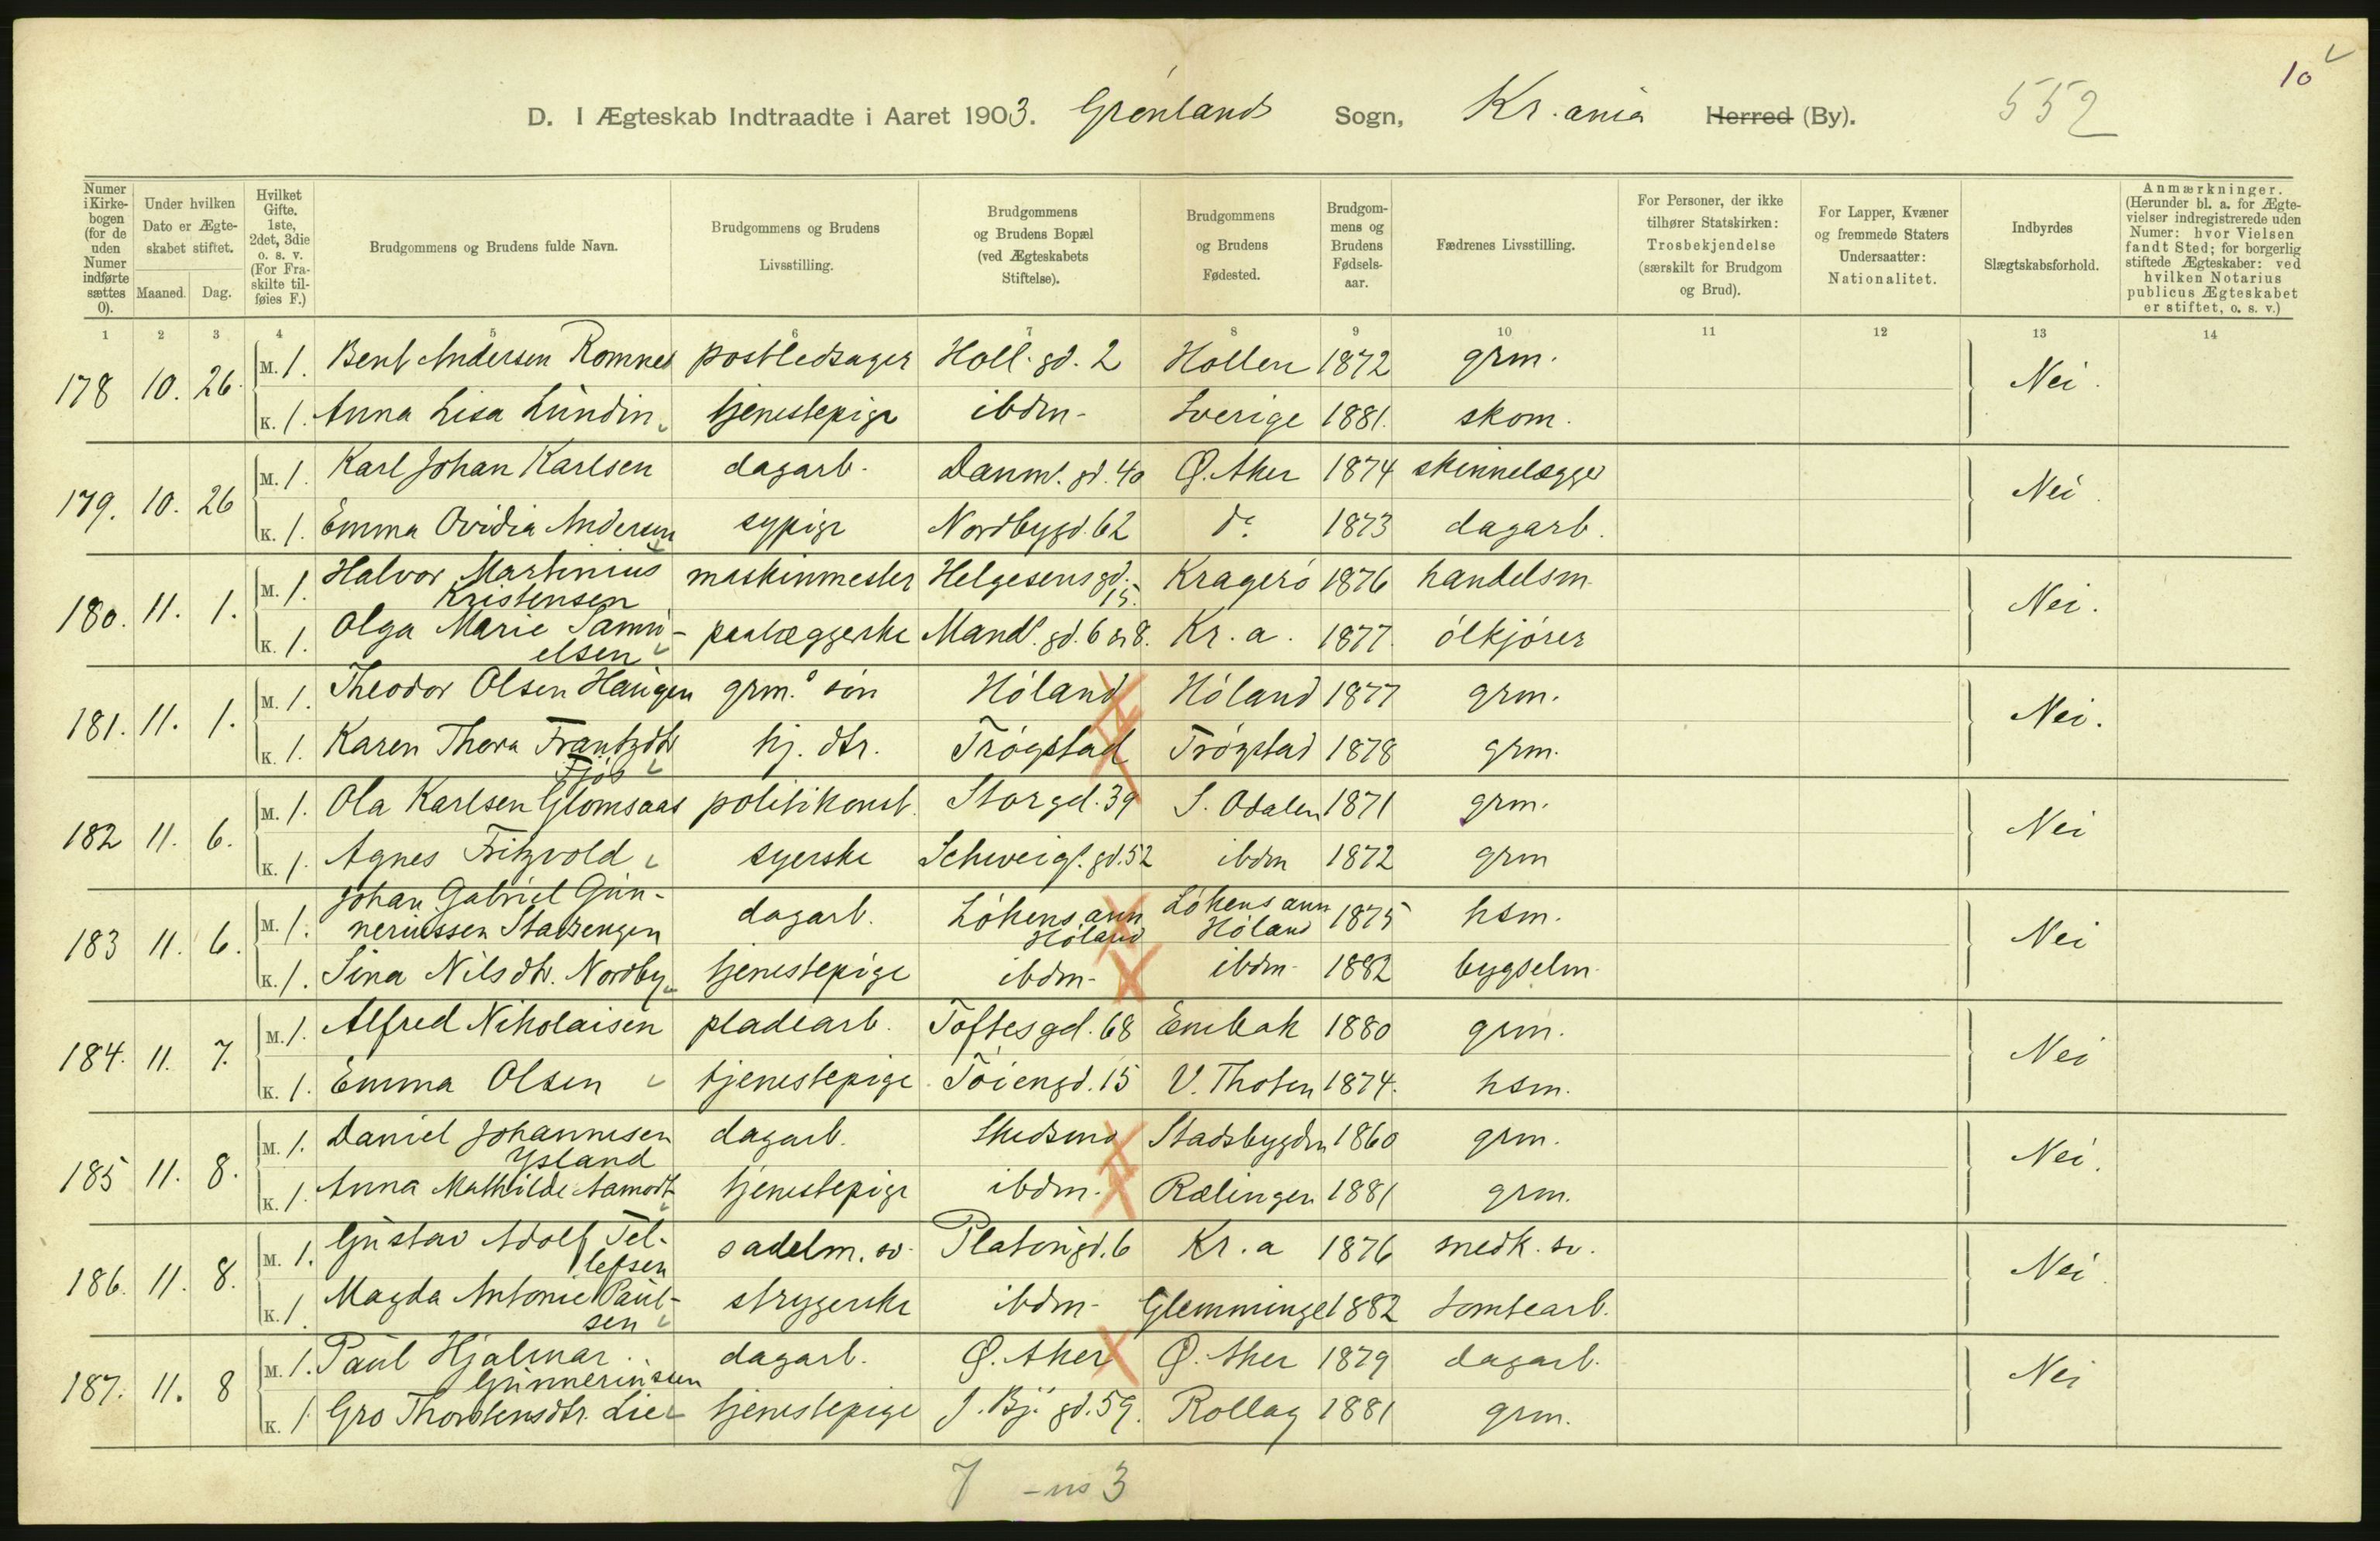 10
D. I Ægteskab Indtraadte i Aaret 1903. Grønlands Sogn, Kr.ania Herred (By). 552
Numer i Kirke-bogen (for de uden Numer indførte sættes 0).
Under hvilken Dato er Ægte-skabet stiftet.
Maaned. Dag.
Hvilket Gifte. 1ste, 2det, 3die o. s. v. (For Fra-skilte til-føies F.)
Brudgommens og Brudens fulde Navn.
Brudgommens og Brudens Livsstilling.
Brudgommens og Brudens Bopæl (ved Ægteskabets Stiftelse).
Brudgommens og Brudens Fødested.
Brudgom-mens og Brudens Fødsels-aar.
Fædrenes Livsstilling.
For Personer, der ikke tilhører Statskirken: Trosbekjendelse (særskilt for Brudgom og Brud).
For Lapper, Kvæner og fremmede Staters Undersaatter: Nationalitet.
Indbyrdes Slægtskabsforhold.
Anmærkninger. (Herunder bl. a. for Ægte-vielser indregistrerede uden Numer: hvor Vielsen fandt Sted; for borgerlig stiftede Ægteskaber: ved hvilken Notarius publicus Ægteskabet er stiftet, o. s. v.)
1 2 3 4 5 6 7 8 9 10 11 12 13 14
178 10. 26. M. 1. Bent Andersen Romnes postledsager Holl. gd. 2 Hollen 1872 grm. Nei.
K. 1. Anna Lisa Lundin tjenestepige ibdm. Sverige 1881. skom.
179. 10. 26 M. 1. Karl Johan Karlsen dagarb. Danm. gd. 40 Ø. Aker 1874 skinnelægger Nei.
K. 1. Emma Ovidia Andersen sypige Nordbygd. 62 do. 1873 dagarb.
180. 11. 1. M. 1. Halvor Martinius Kristensen maskinmester Helgesens gd. 15. Kragerø 1876 handelsm. Nei.
K. 1. Olga Marie Samu-elsen paalæggerske Mandl. gd. 6 & 8. Kr.a. 1877. ølkjører
181. 11. 1. M. 1. Theodor Olsen Haugen grm.s søn Høland Høland 1877 grm. Nei.
K. 1. Karen Thora Frantzdtr Fjøs hj. dtr. Trøgstad Trøgstad 1878 grm.
182 11. 6. M. 1. Ola Karlsen Glomsaas politikonst. Storgd. 39 S. Odalen 1871 grm. Nei
K. 1. Agnes Fritzvold syerske Schweig. gd. 52 ibdm 1872 grm
183 11. 6. M. 1. Johan Gabriel Gun-neriussen Starengen dagarb. Løkens ann Høland Løkens ann Høland 1875 hsm. Nei
K. 1. Sina Nilsdtr. Nordby tjenestepige ibdm. ibdm. 1882 bygselm.
184. 11. 7. M. 1. Alfred Nikolaisen pladearb. Toftesgd. 68 Enebak 1880 grm. Nei
K. 1. Emma Olsen tjenestepige Tøiengd. 15 V. Thoten 1874. hsm.
185 11. 8. M. 1. Daniel Johannesen Ysland dagarb. Skedsmo Stadsbygden 1860 grm. Nei.
K. 1. Anna Mathilde Aamodt tjenestepige ibdm. Rælingen 1881 grm.
186. 11. 8. M. 1. Gustav Adolf Tel-lefsen sadelm. sv. Platousgd. 6 Kr.a 1876 snedk. sv. Nei.
K. 1. Magda Antonie Paul-sen strygerske ibdm. Glemminge 1882 tomtearb.
187. 11. 8 M. 1. Paul Hjalmar Gunneriussen dagarb. Ø. Aker Ø. Aker 1879 dagarb. Nei
K. 1. Gro Thorstensdtr. Lie tjenestepige J. Bj. gd. 59. Rollag 1881 grm.
7 3